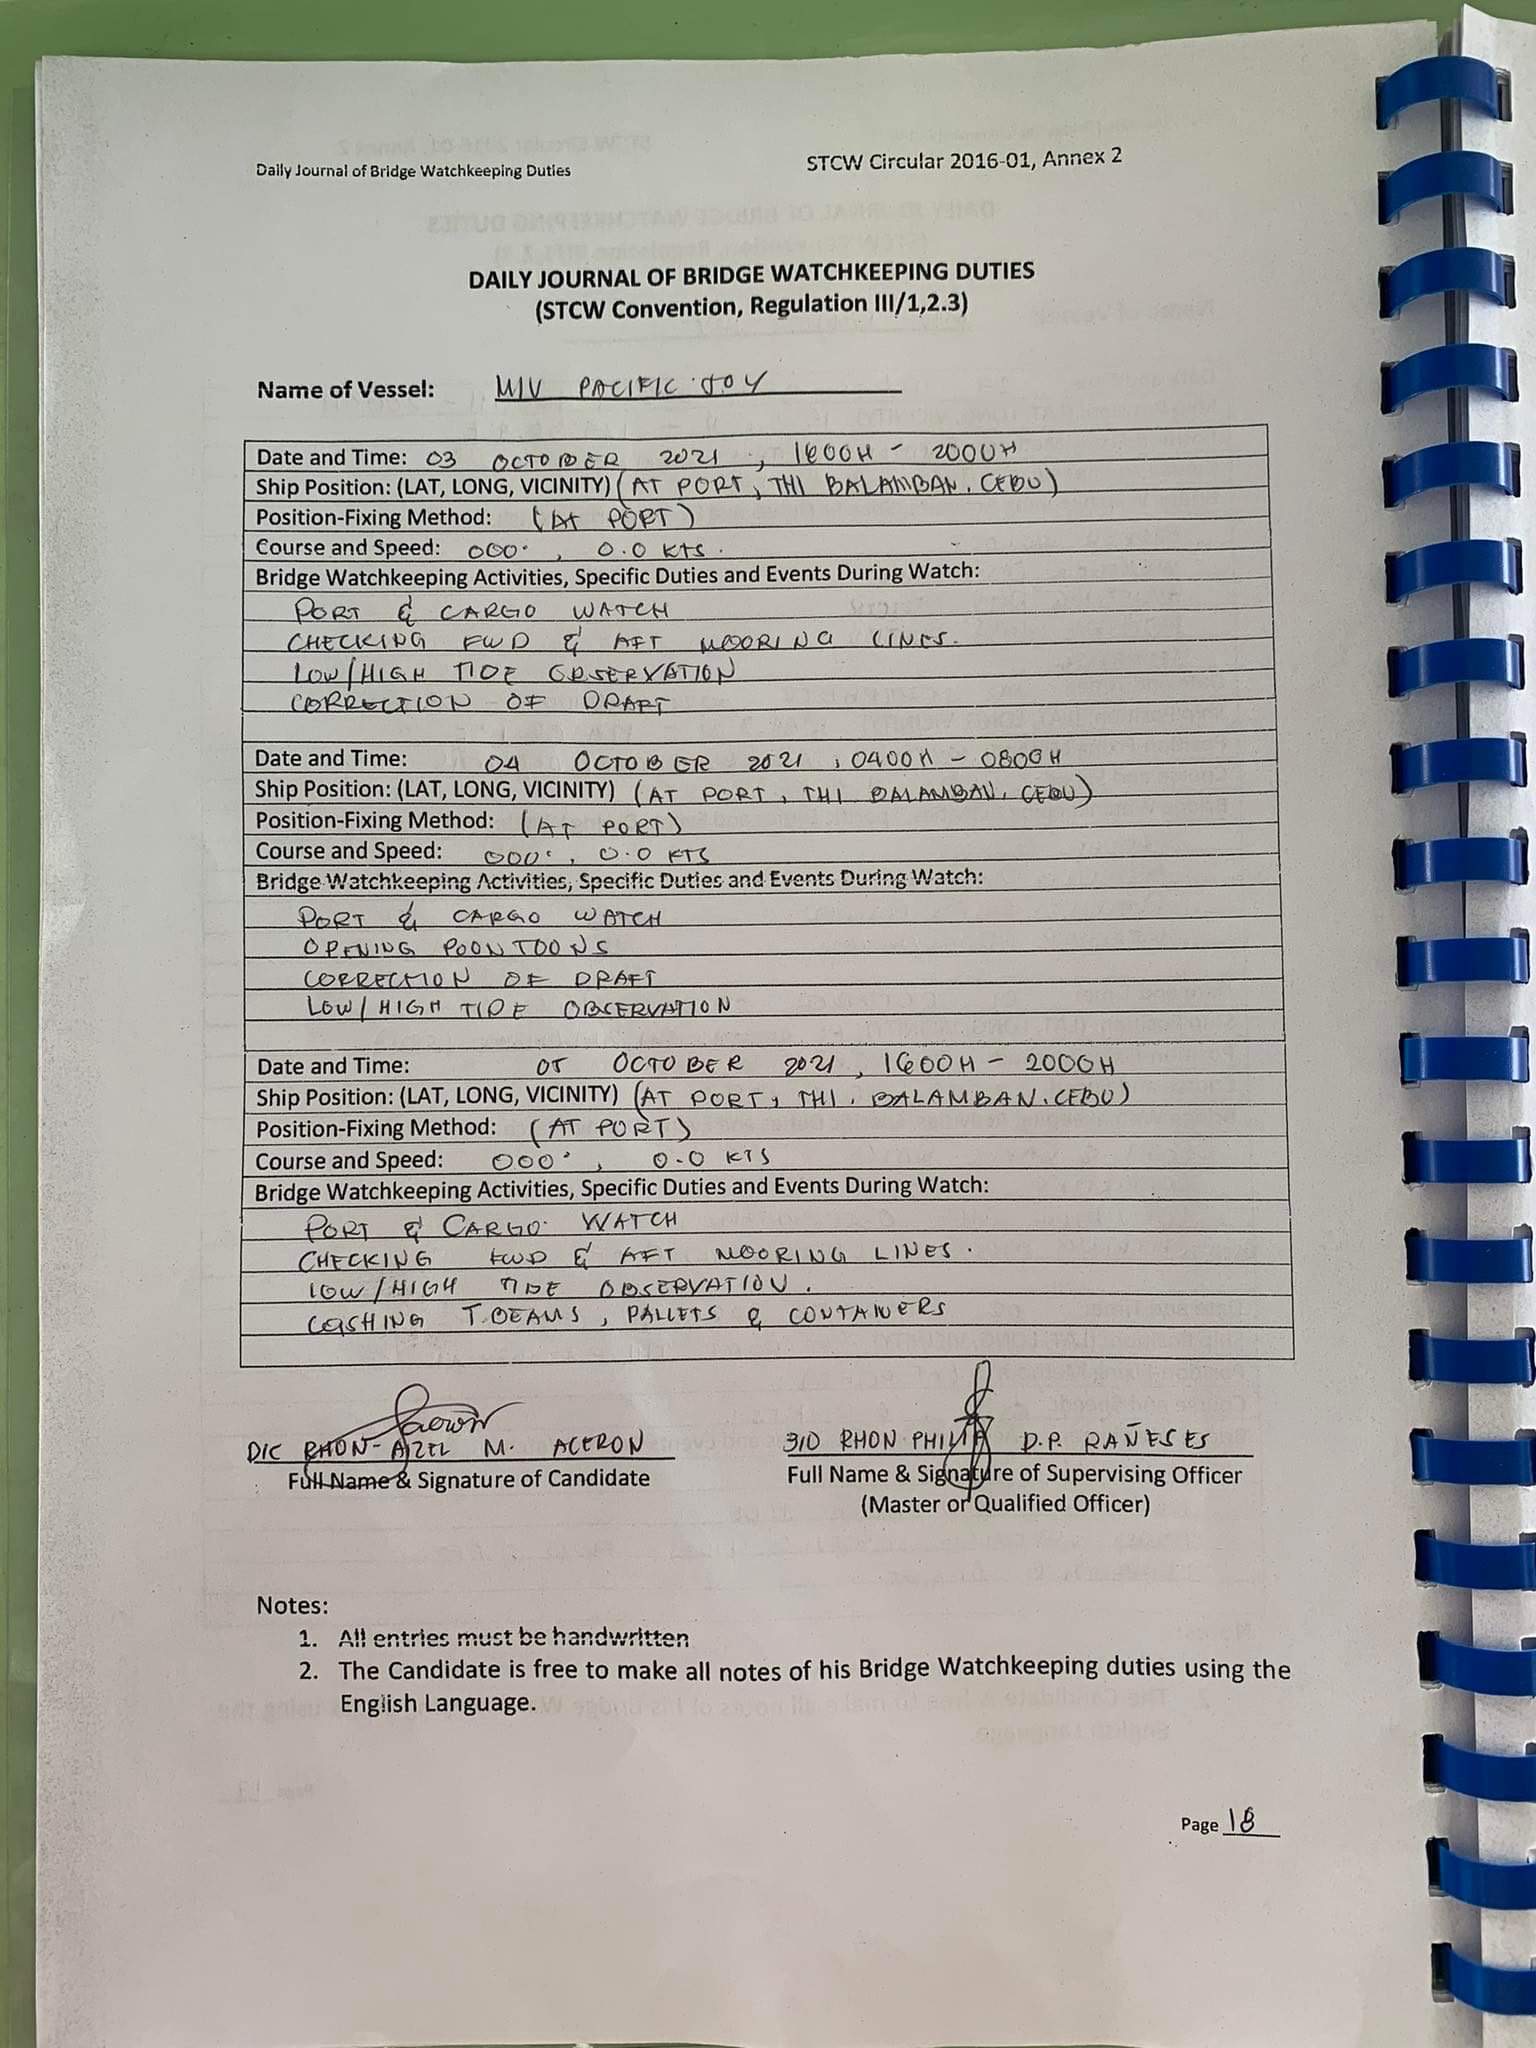 Daily Journal of Bridge Watchkeeping Duties
STCW Circular 2016-01, Annex 2
DAILY JOURNAL OF BRIDGE WATCHKEEPING DUTIES
(STCW Convention, Regulation III/1,2.3)
Name of Vessel: M/V PACIFIC JOY
Date and Time: 03 OCTOBER 2021, 1600H - 2000H
Ship Position: (LAT, LONG, VICINITY) (AT PORT, THI BALAMBAN, CEBU)
Position-Fixing Method: (AT PORT)
Course and Speed: 000°, 0.0 KTS.
Bridge Watchkeeping Activities, Specific Duties and Events During Watch:
PORT & CARGO WATCH
CHECKING FWD & AFT MOORING LINES.
LOW/HIGH TIDE OBSERVATION
CORRECTION OF DRAFT
Date and Time: 04 OCTOBER 2021, 0400H - 0800H
Ship Position: (LAT, LONG, VICINITY) (AT PORT, THI BALAMBAN, CEBU)
Position-Fixing Method: (AT PORT)
Course and Speed: 000°, 0.0 KTS
Bridge Watchkeeping Activities, Specific Duties and Events During Watch:
PORT & CARGO WATCH
OPENING POONTOONS
CORRECTION OF DRAFT
LOW/HIGH TIDE OBSERVATION
Date and Time: 05 OCTOBER 2021, 1600H - 2000H
Ship Position: (LAT, LONG, VICINITY) (AT PORT, THI, BALAMBAN, CEBU)
Position-Fixing Method: (AT PORT)
Course and Speed: 000°, 0.0 KTS
Bridge Watchkeeping Activities, Specific Duties and Events During Watch:
PORT & CARGO WATCH
CHECKING FWD & AFT MOORING LINES.
LOW/HIGH TIDE OBSERVATION.
T.BEAMS, PALLETS & CONTAINERS
D/C RHON-AIZEL M. ACERON
3/O RHON PHILIP D.P. RAÑESES
Full Name & Signature of Candidate
Full Name & Signature of Supervising Officer
(Master or Qualified Officer)
Notes:
1. All entries must be handwritten
2. The Candidate is free to make all notes of his Bridge Watchkeeping duties using the
English Language.
Page 18